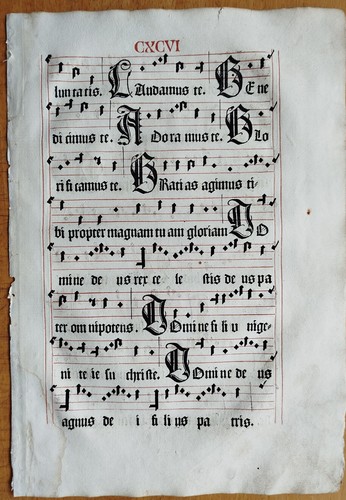 CXCVI
lun ta tis. LAudamus te. BE ne
di cimus te. ADora mus te. GLo
ri fi camus te. GRati as agimus ti-
bi propter magnam tu am gloriam DO
mine de us rex ce le stis de us pa
ter om nipotens. DOmi ne fi li u nige-
ni te ie su christe. DOmi ne de us
agnus de i fi li us pa tris.